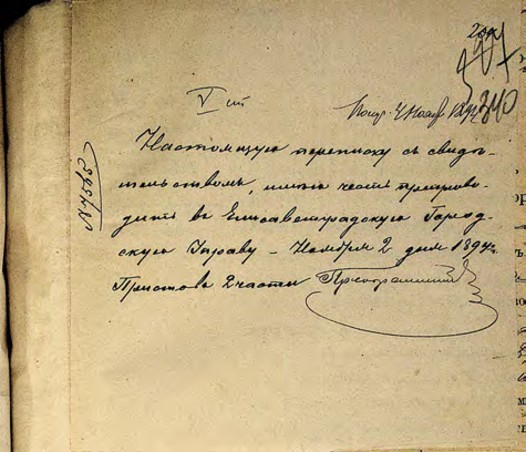 V ст
Получ. 4 Нояб 1894
340
№ 7565
Настоящую переписку съ свидѣ-
тельствомъ, имѣю честь препрово-
дить въ Елисаветградскую Город-
скую Управу – Ноября 2 дня 1894 г.
Приставъ 2 части